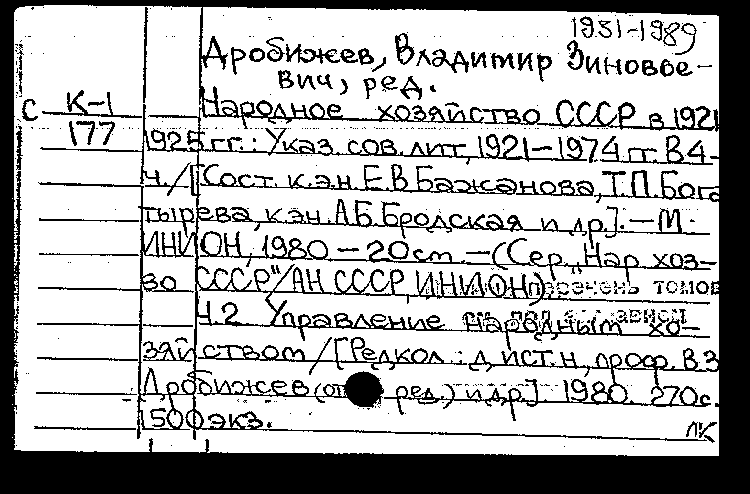 1931-1989
Дробижев, Владимир Зиновье-
вич, ред.
С К-1 Народное хозяйство СССР в 1921
177 1925 гг.: Указ. сов. лит., 1921-1974 гг. В 4-
ч. / [Сост. к.э.н. Е.В. Бажанова, Т.П. Бога
тырева, к.э.н. А.Б. Бродская и др.]. — М.:
ИНИОН, 1980 — 20 см. — (Сер. „Нар. хоз-
во СССР" / АН СССР, ИНИОН) перечень томов
Ч.2 Управление народным хо-
зяйством / [Редкол.: д. ист. н., проф. В.З
Дробижев (от ред.) и др.] 1980. 270 с.
1500 экз.
ЛК